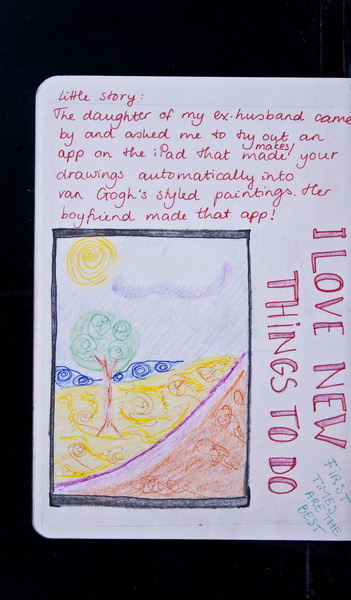 little story:
The daughter of my ex-husband came
by and asked me to try out an
app on the iPad that made makes! your
drawings automatically into
van Gogh's styled paintings. Her
boyfriend made that app!
I LOVE NEW
THINGS TO DO
FIRST
TIMES
ARE THE
BEST